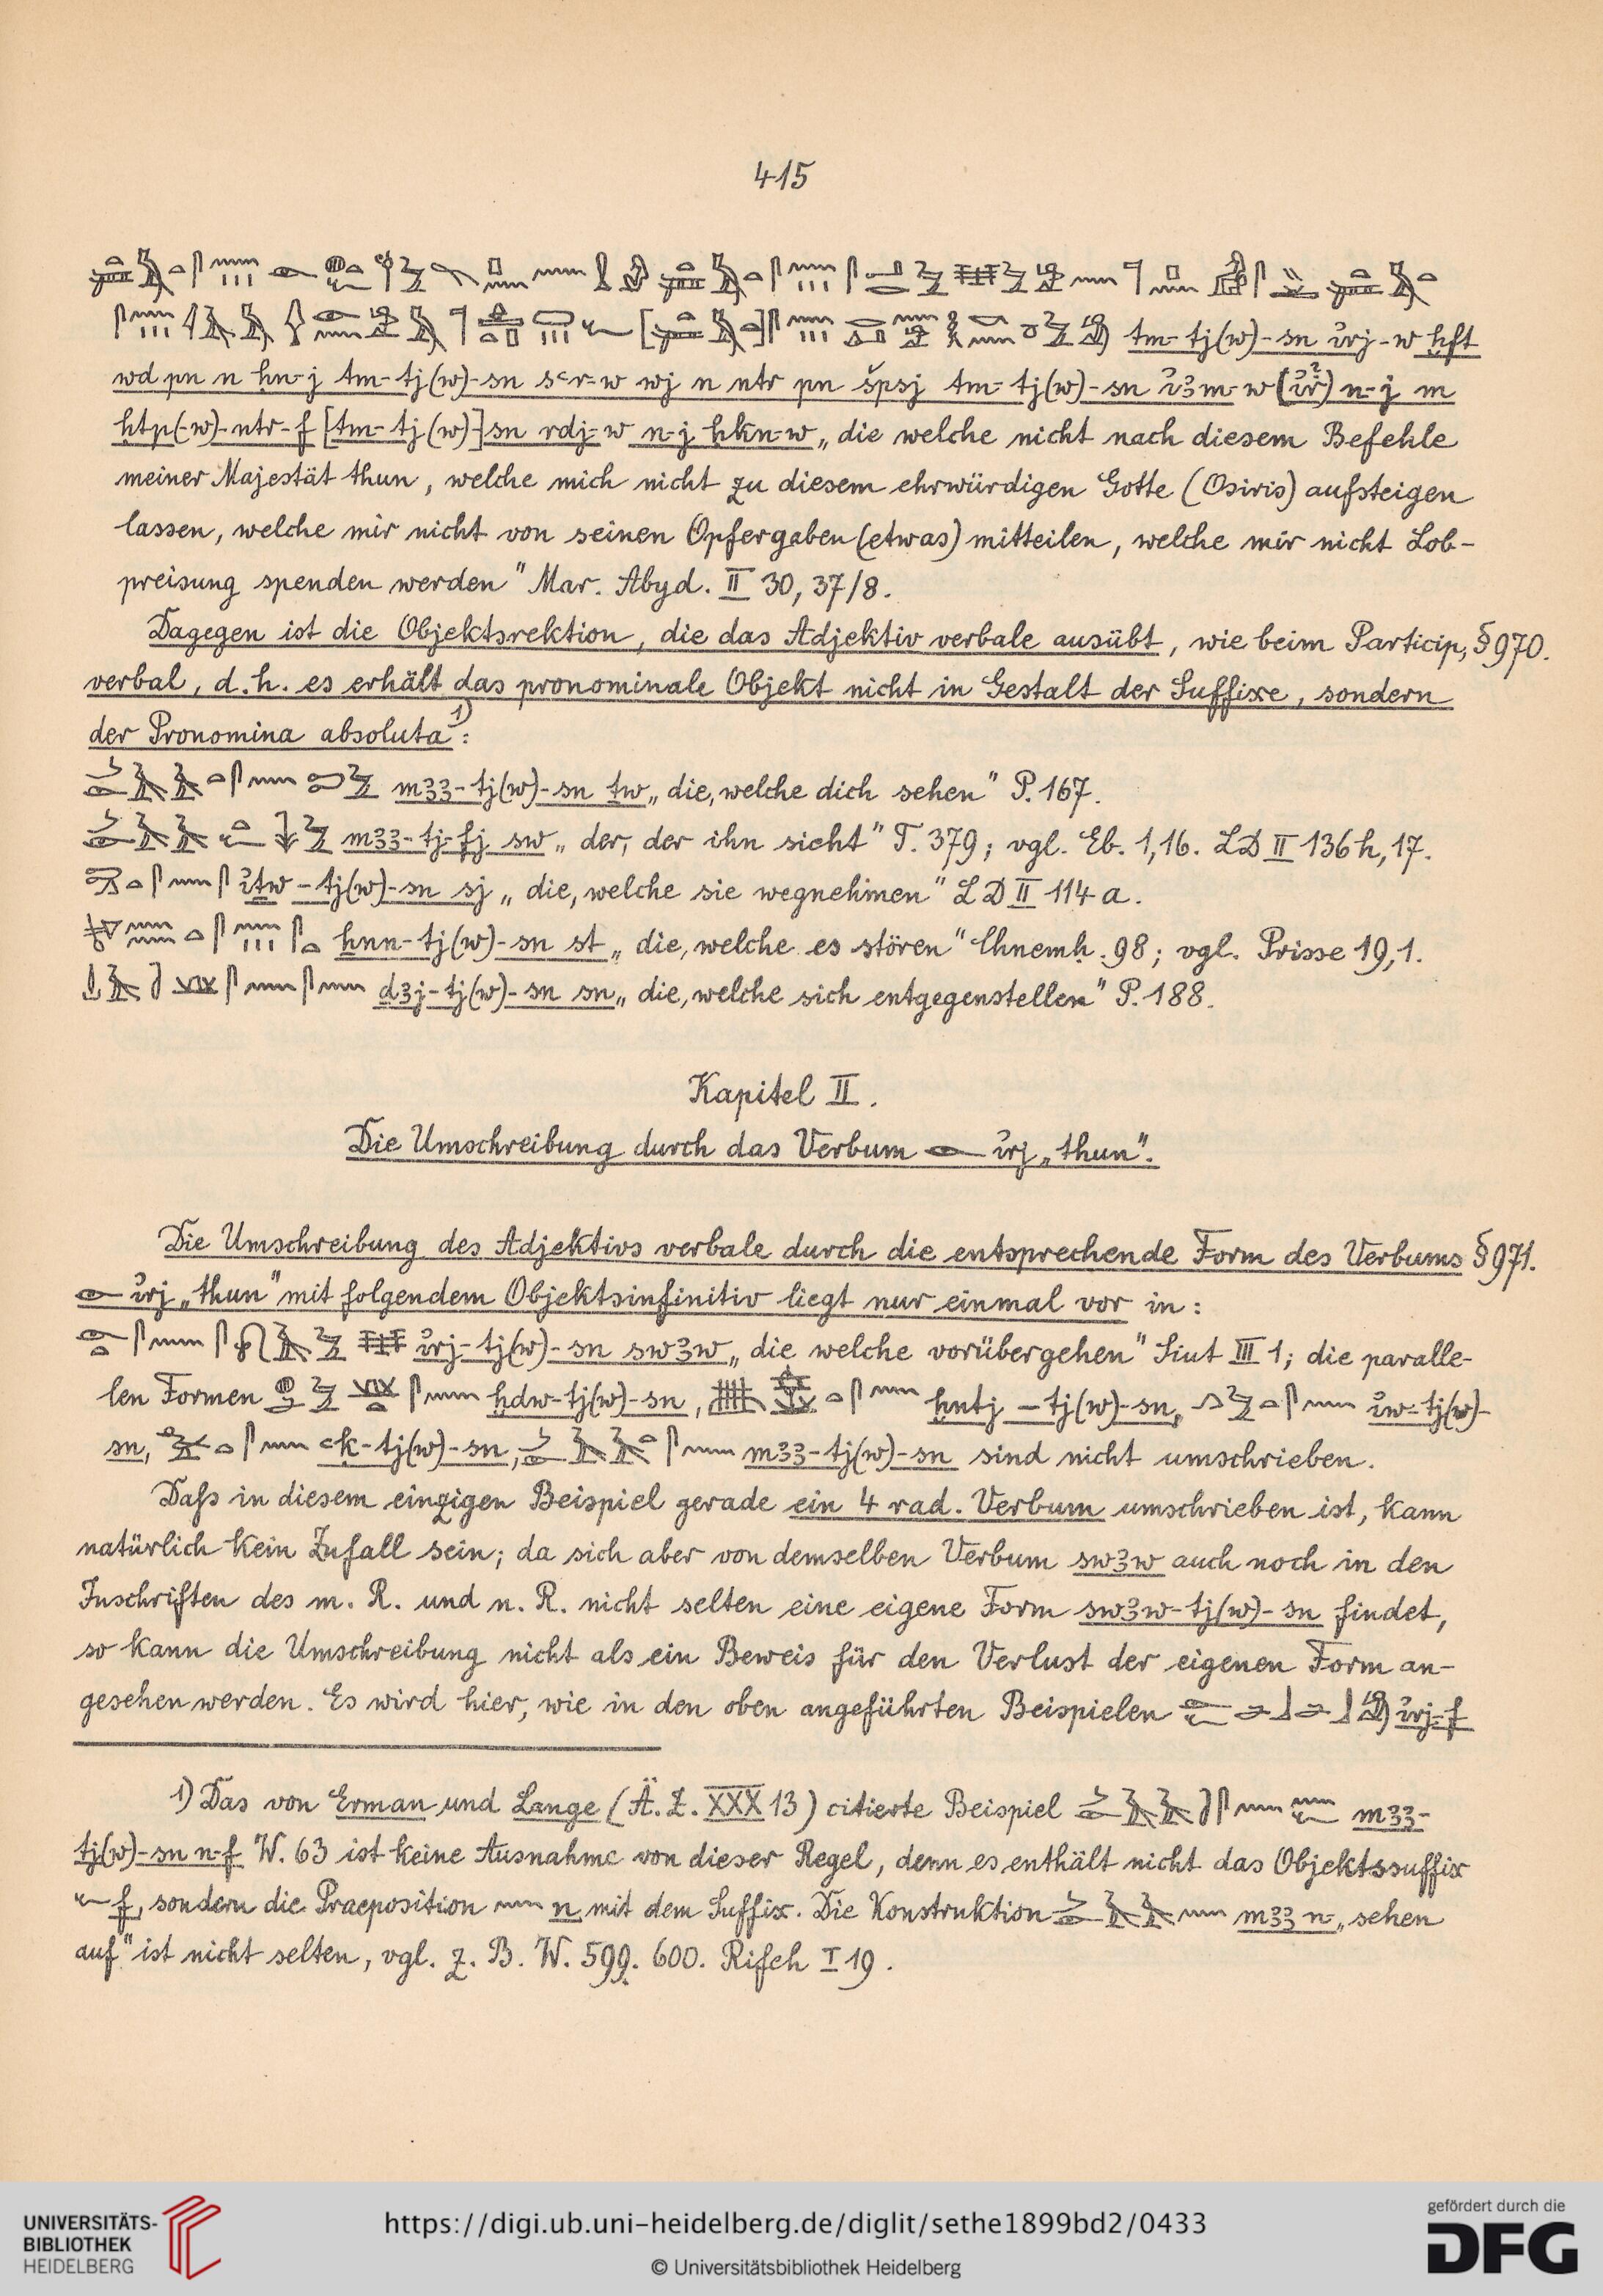 415
tm-tj(w)-sn ı͗rj-w ḫft
wd pn n ḥn-j tm-tj(w)-sn sʿr-w wj n nṯr pn špsj tm-tj(w)-sn n-j m
ḥtp(-w)-nṯr-f [tm-tj(w)]sn rdj-w n-j ḥkn-w „die welche nicht nach diesem Befehle
meiner Majestät thun, welche mich nicht zu diesem ehrwürdigen Gotte (Osiris) aufsteigen
lassen, welche mir nicht von seinen Opfergaben (etwas) mitteilen, welche mir nicht Lob-
preisung spenden werden" Mar. Abyd. II 30, 37/8.
Dagegen ist die Objektsrektion, die das Adjektiv verbale ausübt, wie beim Particip, § 970.
verbal, d. h. es erhält das pronominale Objekt nicht in Gestalt der Suffixe, sondern
der Pronomina absoluta 1):
mꜣꜣ-tj(w)-sn ṯw „die, welche dich sehen" P. 167.
mꜣꜣ-tj-fj sw „der, der ihn sieht" T. 379; vgl. Eb. 1,16. LD II 136h, 17.
ı͗ṯw-tj(w)-sn sj „die, welche sie wegnehmen" LD II 114 a.
ḫnn-tj(w)-sn st „die, welche es stören" Chnemḥ. 98; vgl. Prisse 19,1.
ḏꜣj-tj(w)-sn sn „die, welche sich entgegenstellen" P. 188.
Kapitel II.
Die Umschreibung durch das Verbum ı͗rj „thun".
Die Umschreibung des Adjektivs verbale durch die entsprechende Form des Verbums § 971.
ı͗rj „thun" mit folgendem Objektsinfinitiv liegt nur einmal vor in:
ı͗rj-tj(w)-sn swꜣw „die welche vorübergehen" Siut III 1; die paralle-
len Formen ḫdw-tj(w)-sn, ḫntj-tj(w)-sn, ı͗w-tj(w)-
sn, ʿḳ-tj(w)-sn, mꜣꜣ-tj(w)-sn sind nicht umschrieben.
Daſs in diesem einzigen Beispiel gerade ein 4 rad. Verbum umschrieben ist, kann
natürlich kein Zufall sein; da sich aber von demselben Verbum swꜣw auch noch in den
Inschriften des m. R. und n. R. nicht selten eine eigene Form swꜣw-tj(w)-sn findet,
so kann die Umschreibung nicht als ein Beweis für den Verlust der eigenen Form an-
gesehen werden. Es wird hier, wie in den oben angeführten Beispielen ı͗rj-f
1) Das von Erman und Lange (Ä. Z. XXX 13) citierte Beispiel mꜣꜣ-
tj(w)-sn n-f W. 63 ist keine Ausnahme von dieser Regel, denn es enthält nicht das Objektssuffix
f, sondern die Praeposition n mit dem Suffix. Die Konstruktion mꜣꜣ n- „sehen
auf" ist nicht selten, vgl. z. B. W. 599. 600. Rifeh I 19.
UNIVERSITÄTS-
BIBLIOTHEK
HEIDELBERG
https://digi.ub.uni-heidelberg.de/diglit/sethe1899bd2/0433
© Universitätsbibliothek Heidelberg
gefördert durch die
DFG